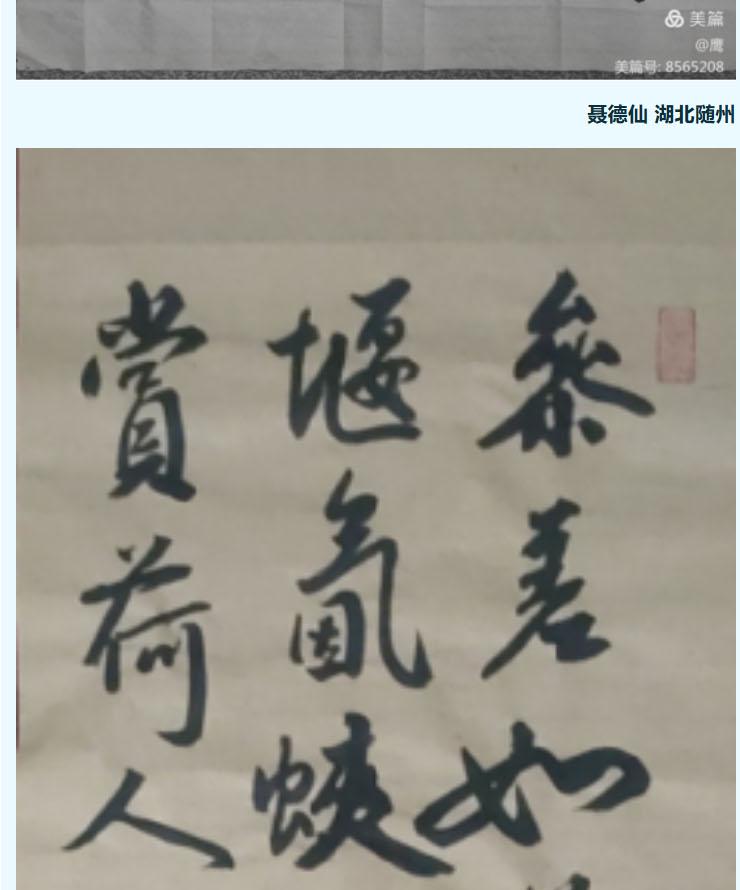 美篇
@鹰
美篇号: 8565208
聂德仙 湖北随州
參差如
堰氤蛱
賞荷人